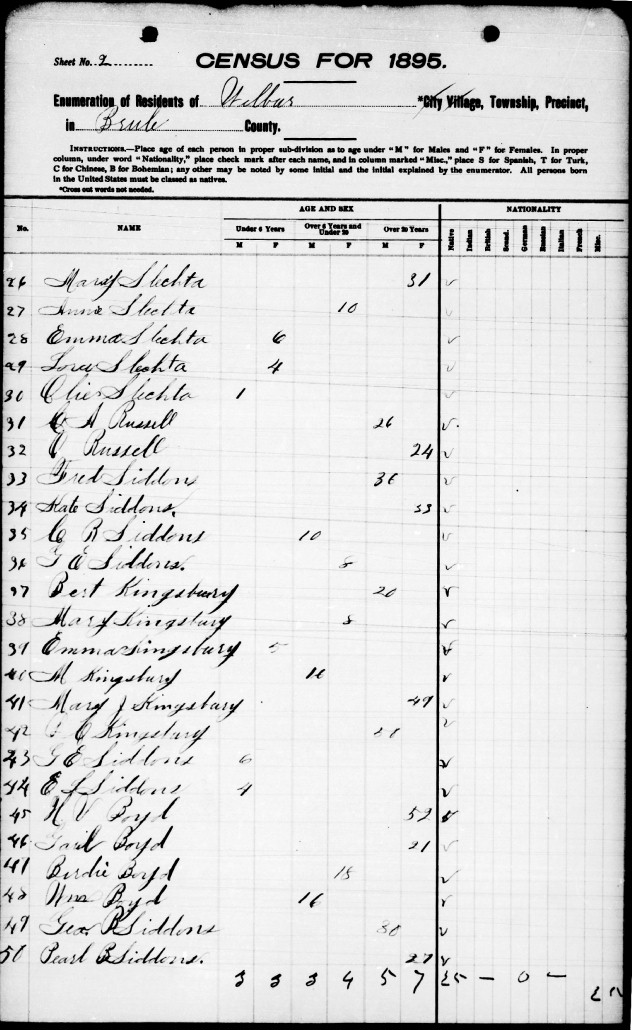 Sheet No. 2
CENSUS FOR 1895.
Enumeration of Residents of Wilbur *City Village, Township, Precinct,
in Brule County.
INSTRUCTIONS.—Place age of each person in proper sub-division as to age under "M" for Males and "F" for Females. In proper
column, under word "Nationality," place check mark after each name, and in column marked "Misc., " place S for Spanish, T for Turk,
C for Chinese, B for Bohemian; any other may be noted by some initial and the initial explained by the enumerator. All persons born
in the United States must be classed as natives.
*Cross out words not needed.
AGE AND SEX NATIONALITY
No. NAME Under 6 Years Over 6 Years and Under 20 Over 20 Years Native Indian British Scand. German Russian Italian French Misc.
M F M F M F
26 Mary Slechta 31 ✓
27 Anna Slechta 10 ✓
28 Emma Slechta 6 ✓
29 Slechta 4 ✓
30 Slechta 1 ✓
31 C A Russell 26 ✓
32 C Russell 24 ✓
33 Fred Siddons 36 ✓
34 Kate Siddons. 33 ✓
35 C R Siddons 10 ✓
36 G E Siddons. 8 ✓
37 Bert Kingsbury 20 ✓
38 Mary Kingsbury 8 ✓
39 Emma Kingsbury 5 ✓
40 M Kingsbury ✓
41 Mary J Kingsbury 49 ✓
42 C Kingsbury ✓
43 G E Siddons 6 ✓
44 E J Siddons 4 ✓
45 N V Boyd 52 ✓
46 Gail Boyd 21 ✓
47 Birdie Boyd 18 ✓
48 Wm Boyd 16 ✓
49 Geo R Siddons 30 ✓
50 Pearl B Siddons. 27 ✓
3 3 3 4 5 7 25 – 0 –